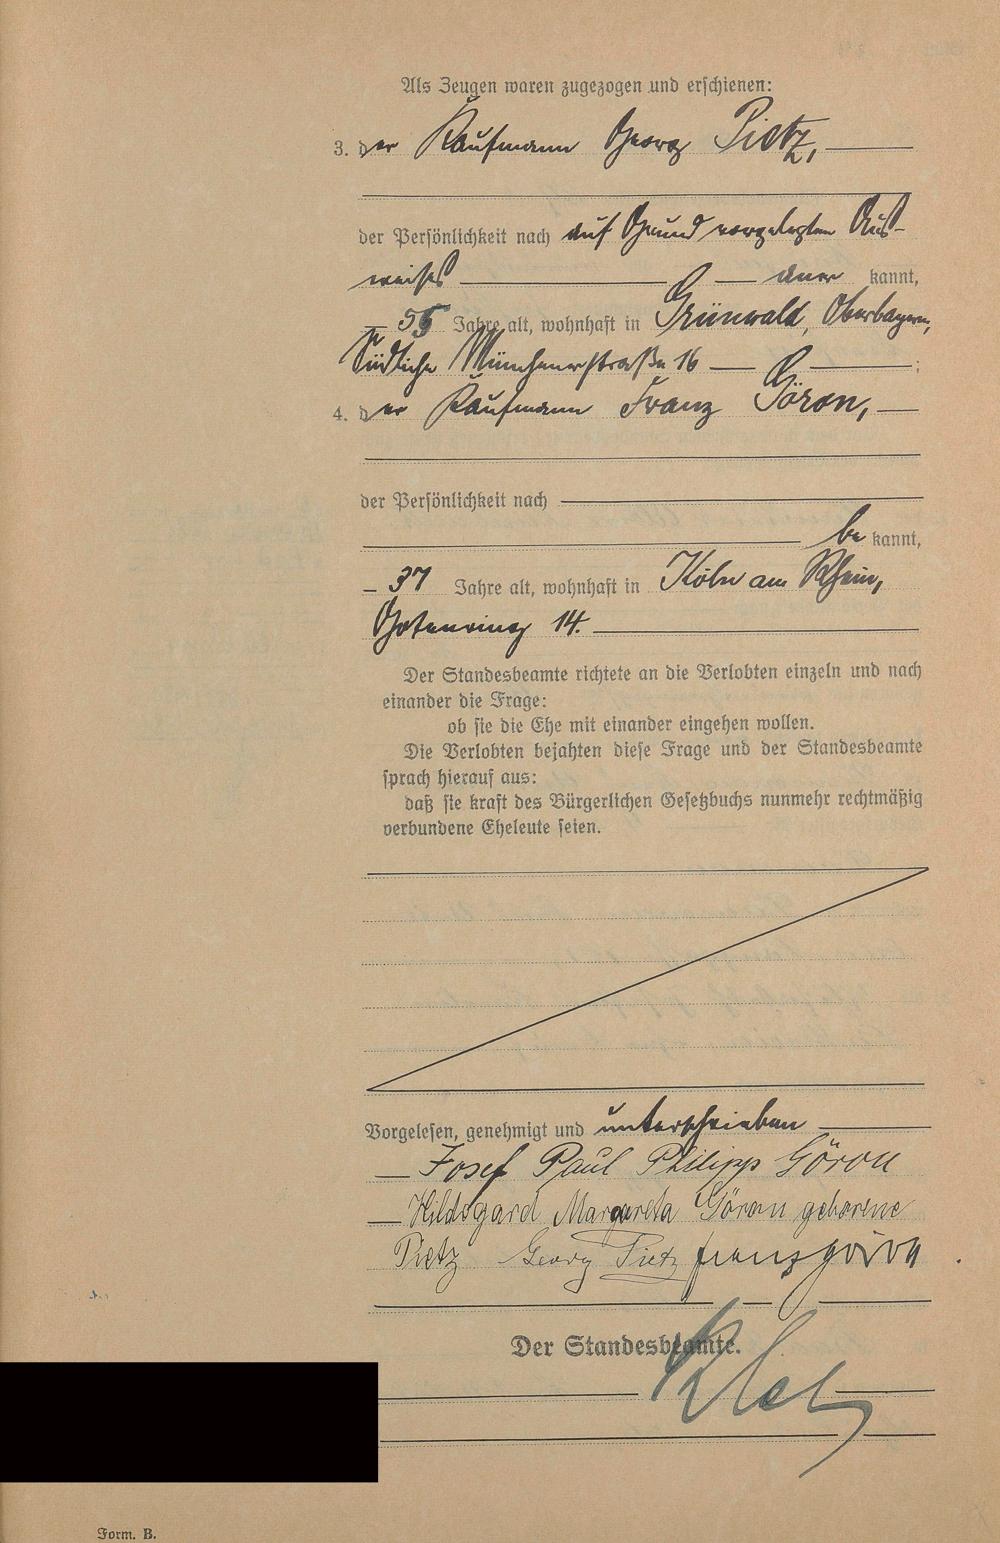 Als Zeugen waren zugezogen und erschienen:
3. der Kaufmann Georg Pietz,
der Persönlichkeit nach auf Grund vorgelegten Aus-
weises aner kannt,
55 Jahre alt, wohnhaft in Grünwald, Oberbayern,
Südliche Münchenerstraße 16 ;
4. der Kaufmann Franz Göron,
der Persönlichkeit nach
be kannt,
37 Jahre alt, wohnhaft in Köln am Rhein,
Gotenring 14.
Der Standesbeamte richtete an die Verlobten einzeln und nach
einander die Frage:
ob sie die Ehe mit einander eingehen wollen.
Die Verlobten bejahten diese Frage und der Standesbeamte
sprach hierauf aus:
daß sie kraft des Bürgerlichen Gesetzbuchs nunmehr rechtmäßig
verbundene Eheleute seien.
Vorgelesen, genehmigt und unterschrieben
Josef Paul Philipp Göron
Hildegard Margareta Göron geborene
Pietz Georg Pietz Franz Göron
Der Standesbeamte.
Form. B.